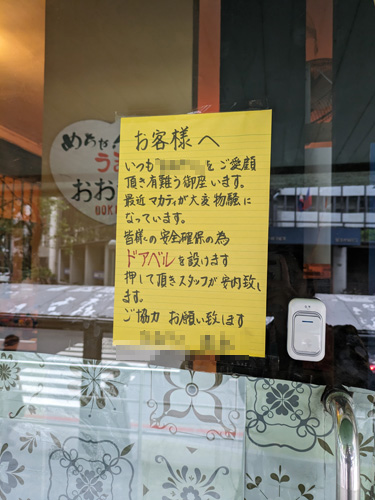 お客様へ
いつも を ご愛顧
頂き有難う御座います。
最近マカティが大変物騒に
なっています。
皆様の安全確保の為
ドアベルを設けます
押して頂きスタッフが案内致し
ます。
ご協力 お願い致します
めちゃ
うま
おお
UOKI